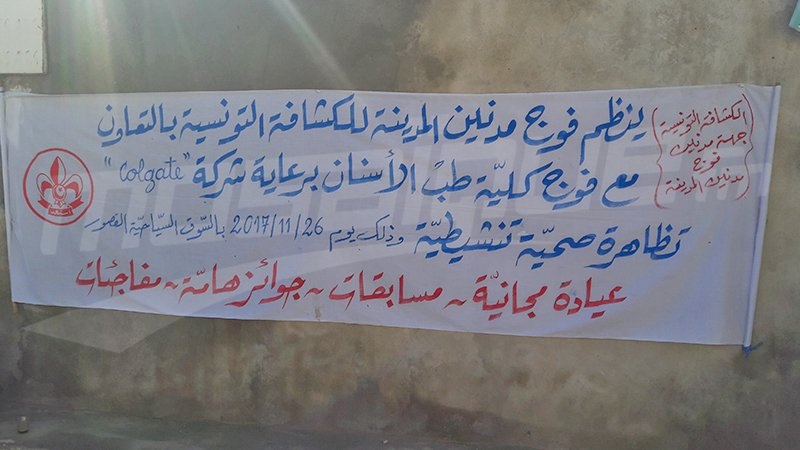 الكشافة التونسية
جهة مدنين
فوج
مدنين المدينة
ينظم فوج مدنين المدينة للكشافة التونسية بالتعاون
مع فوج كليّة طبّ الأسنان برعاية شركة "Colgate"
تظاهرة صحيّة تنشيطيّة وذلك يوم 2017/11/26 بالسّوق السّياحيّة القصور
عيادة مجانيّة - مسابقات - جوائز هامّة - مفاجئات